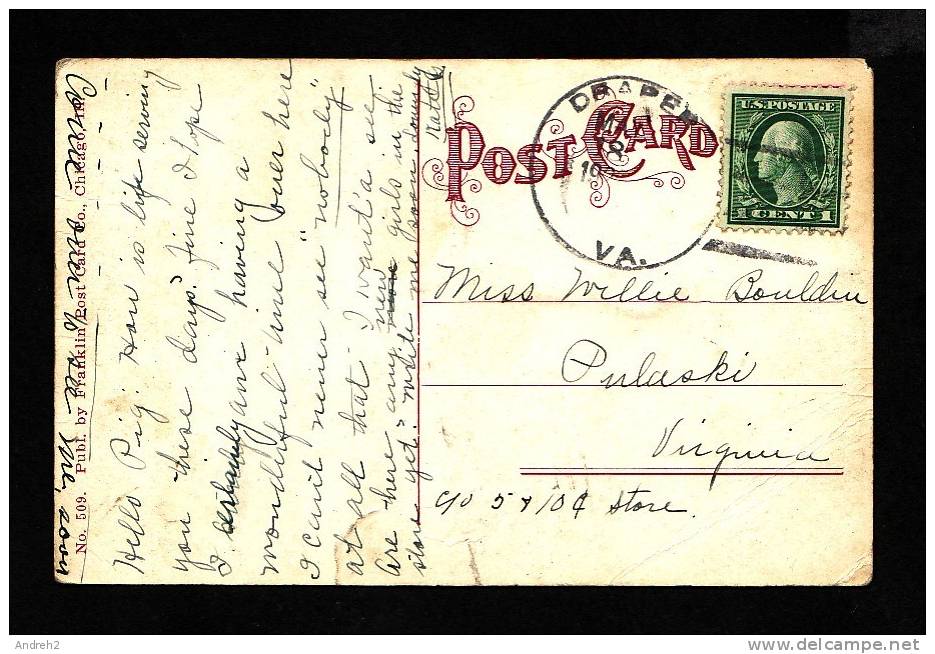 Come over to see me, soon
No. 509. Publ. by Franklin Post Card Co., Chicago, Ill.
Hello Pig: How is life serving
you these days? Fine I hope
I certainly am having a
wonderful time "over here"
I can't never see "nobody"
at all that I want'a see
are there any new girls in the
store yet? Write me soon
POST CARD
DRAPER
VA.
U.S. POSTAGE
1 CENT 1
Miss Willie Bouldin
Pulaski
Virginia
c/o 5 & 10¢ store.
Andreh2
www.delcampe.net